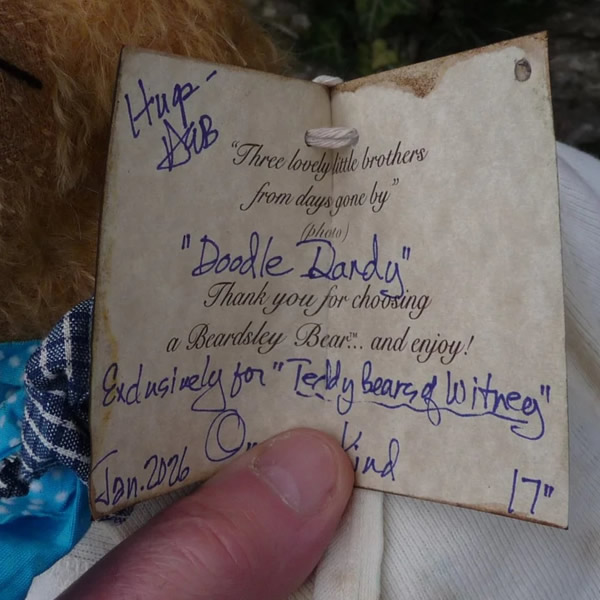 Hugs -
"Three lovely little brothers
from days gone by"
(photo)
"Doodle Dandy"
Thank you for choosing
a Beardsley Bear™... and enjoy!
Exclusively for "Teddy Bears of Witney"
Kind
Jan. 2026
17"